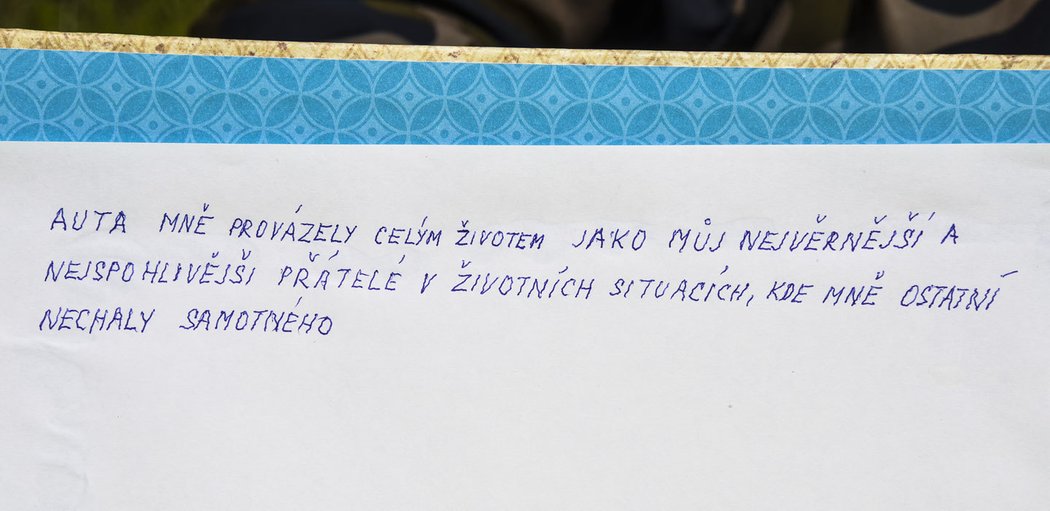 AUTA MNĚ PROVÁZELY CELÝM ŽIVOTEM JAKO MŮJ NEJVĚRNĚJŠÍ A
NEJSPOHLIVĚJŠI PŘÁTELÉ V ŽIVOTNÍCH SITUACÍCH, KDE MNĚ OSTATNÍ
NECHALY SAMOTNÉHO